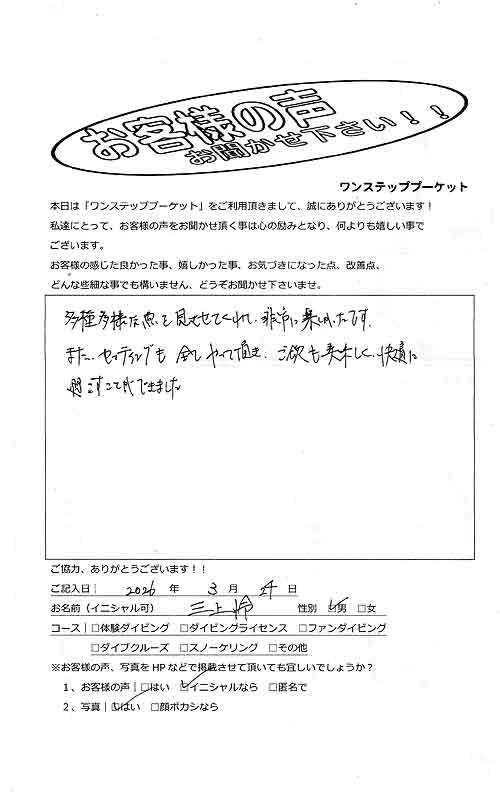 お客様の声
お聞かせ下さい！！
ワンステッププーケット
本日は「ワンステッププーケット」をご利用頂きまして、誠にありがとうございます！
私達にとって、お客様の声をお聞かせ頂く事は心の励みとなり、何よりも嬉しい事で
ございます。
お客様の感じた良かった事、嬉しかった事、お気づきになった点、改善点、
どんな些細な事でも構いません、どうぞお聞かせ下さいませ。
多種多様な点を見せてくれて、非常に楽しかったです。
また、セッティングも全てやって頂き、ご飯も美味しく、快適に
過ごすことができました
ご協力、ありがとうございます！！
ご記入日｜ 2026 年 3 月 24 日
お名前（イニシャル可） 三上 性別 □男 □女
コース｜□体験ダイビング □ダイビングライセンス □ファンダイビング
□ダイブクルーズ □スノーケリング □その他
※お客様の声、写真をHPなどで掲載させて頂いても宜しいでしょうか？
１、お客様の声｜□はい □イニシャルなら □匿名で
２、写真｜□はい □顔ボカシなら